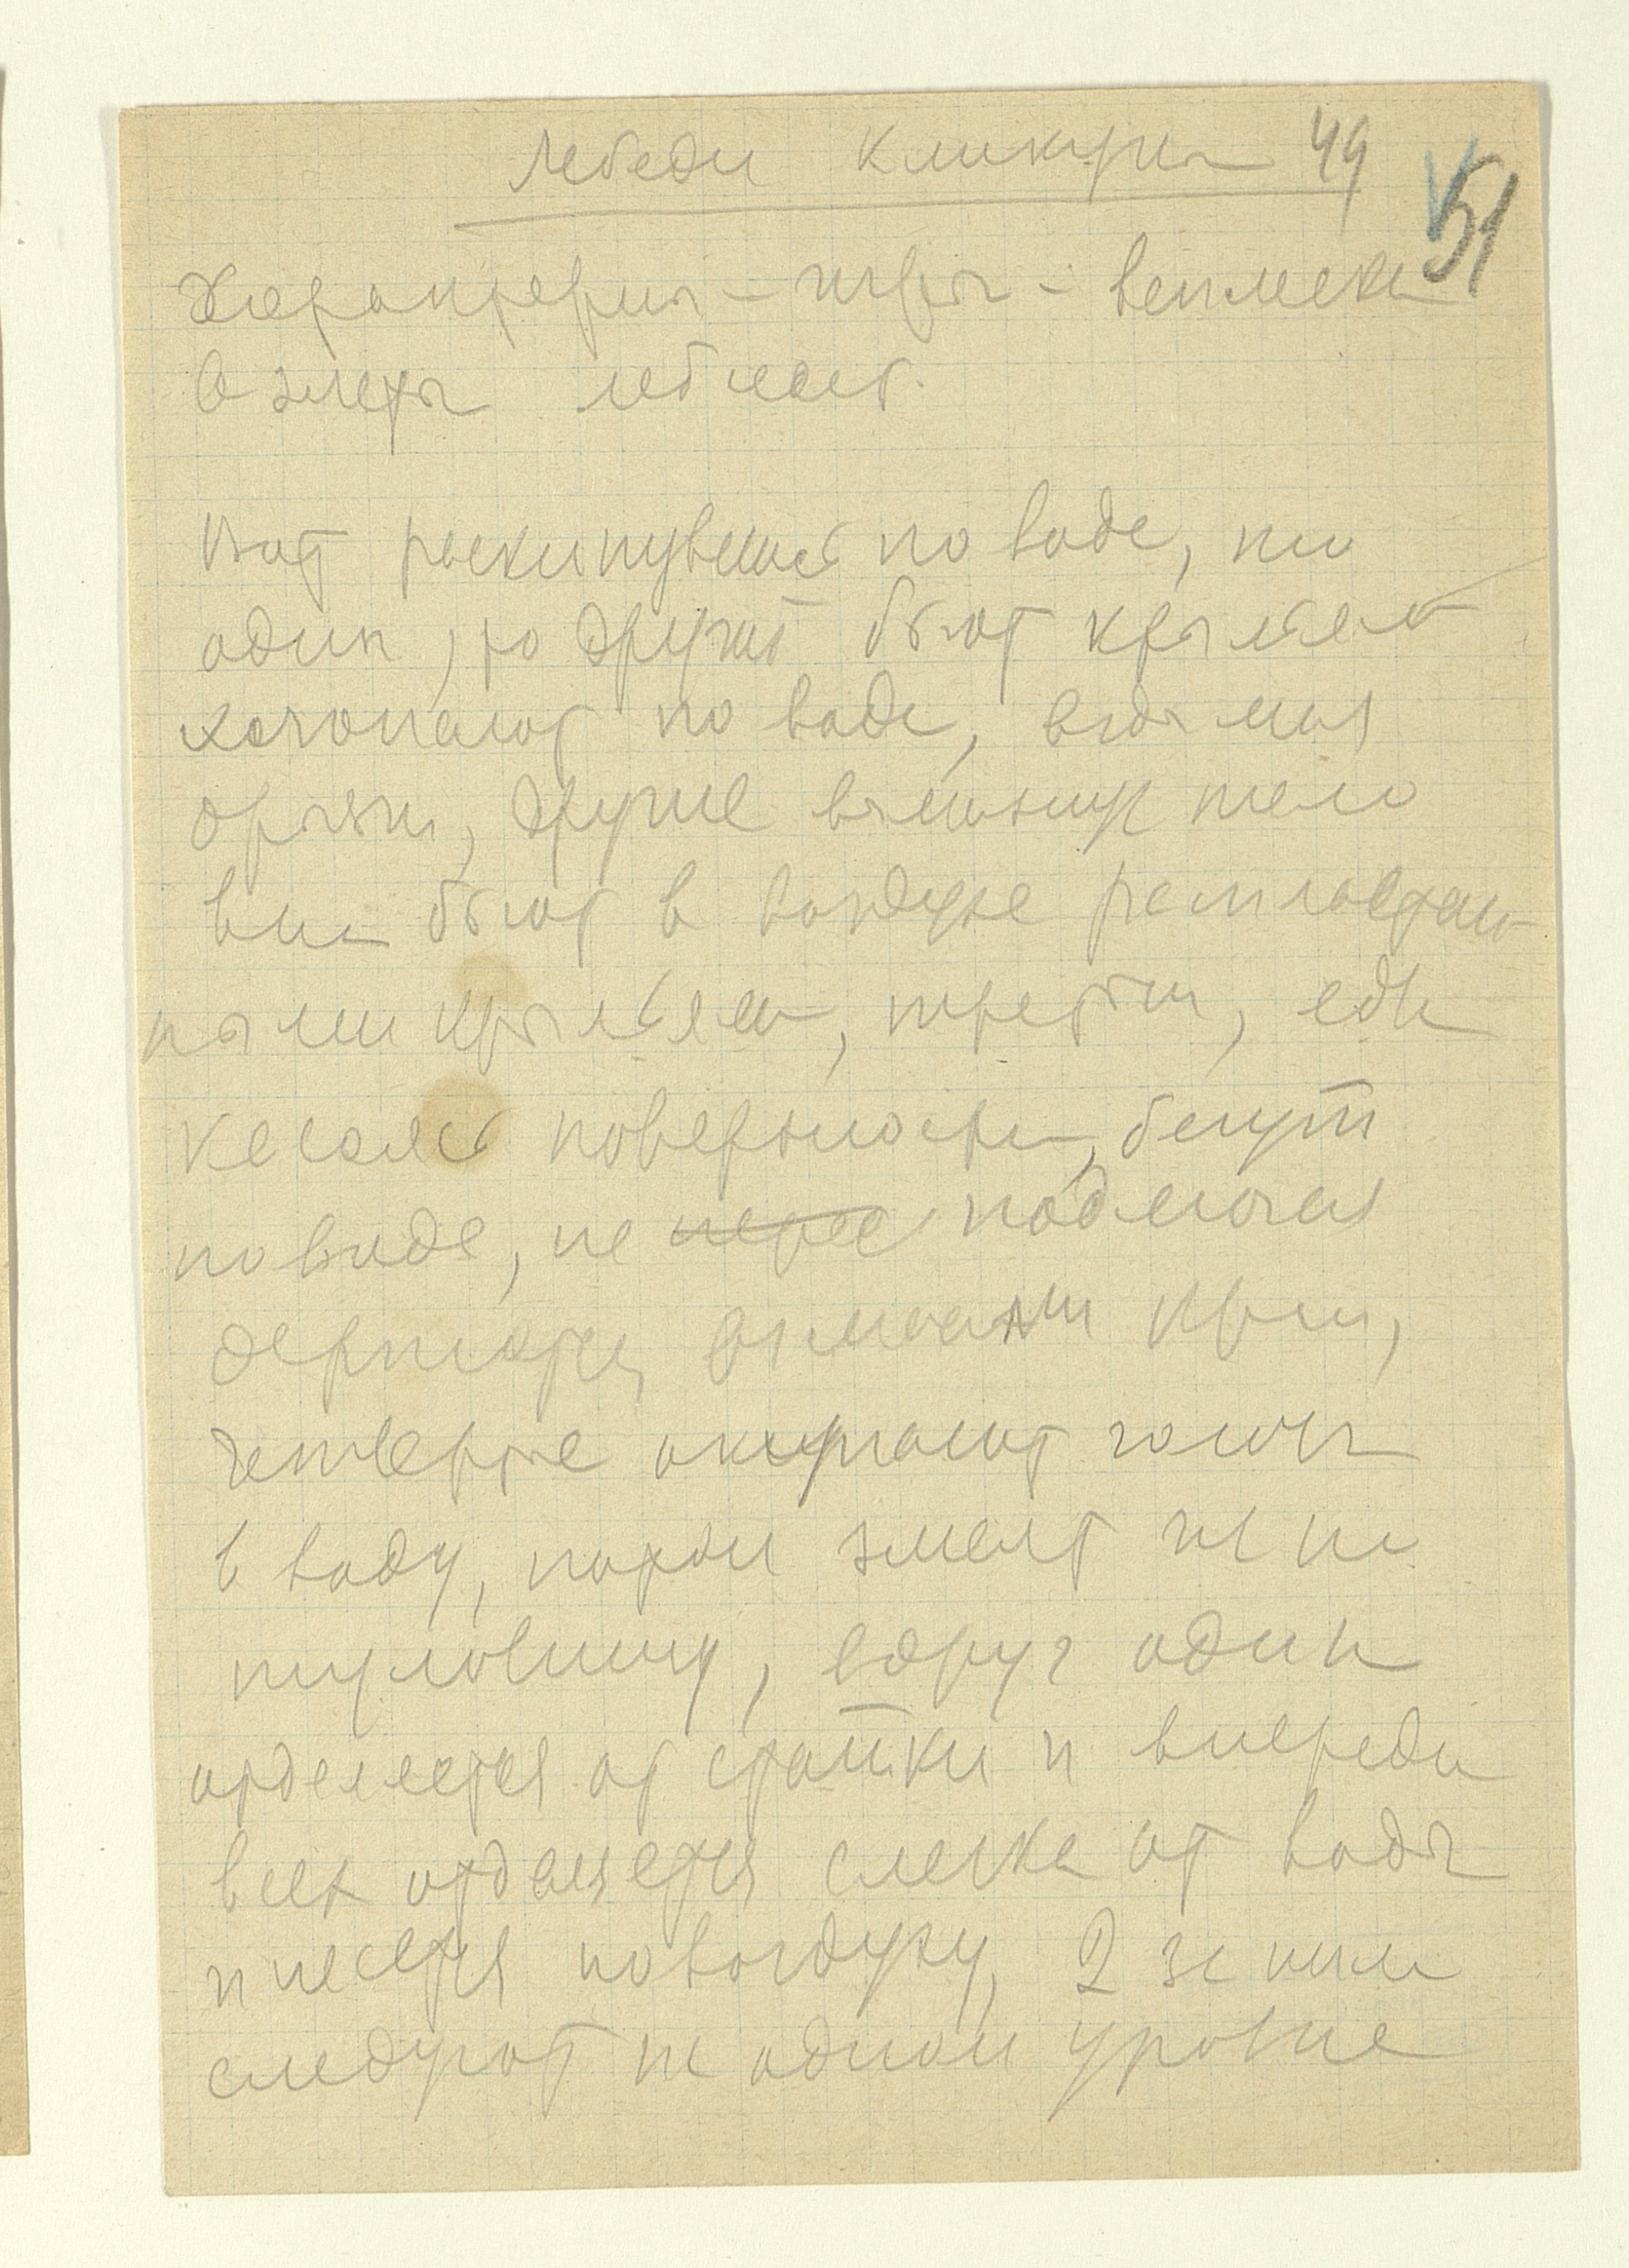 Лебеди кликуны 49
51
Характерны – игры – всплески
взлеты лебедей.
Вот раскинувшись по воде, то
один, то другой бьют крыльями
хлопают по воде, вздымая
брызги, другие вытянув тело
бьют в воздухе распластан-
ными крыльями, третьи, едва
касаясь поверхности, бегут
по воде, не подымая
взмахами крыл,
четвертые окунают головы
в воду, потом
туловищу, вдруг один
отделяется от стайки и впереди
всех отделяется слегка от воды
и несется по воздуху, 2 за ним
следуют на одном уровне